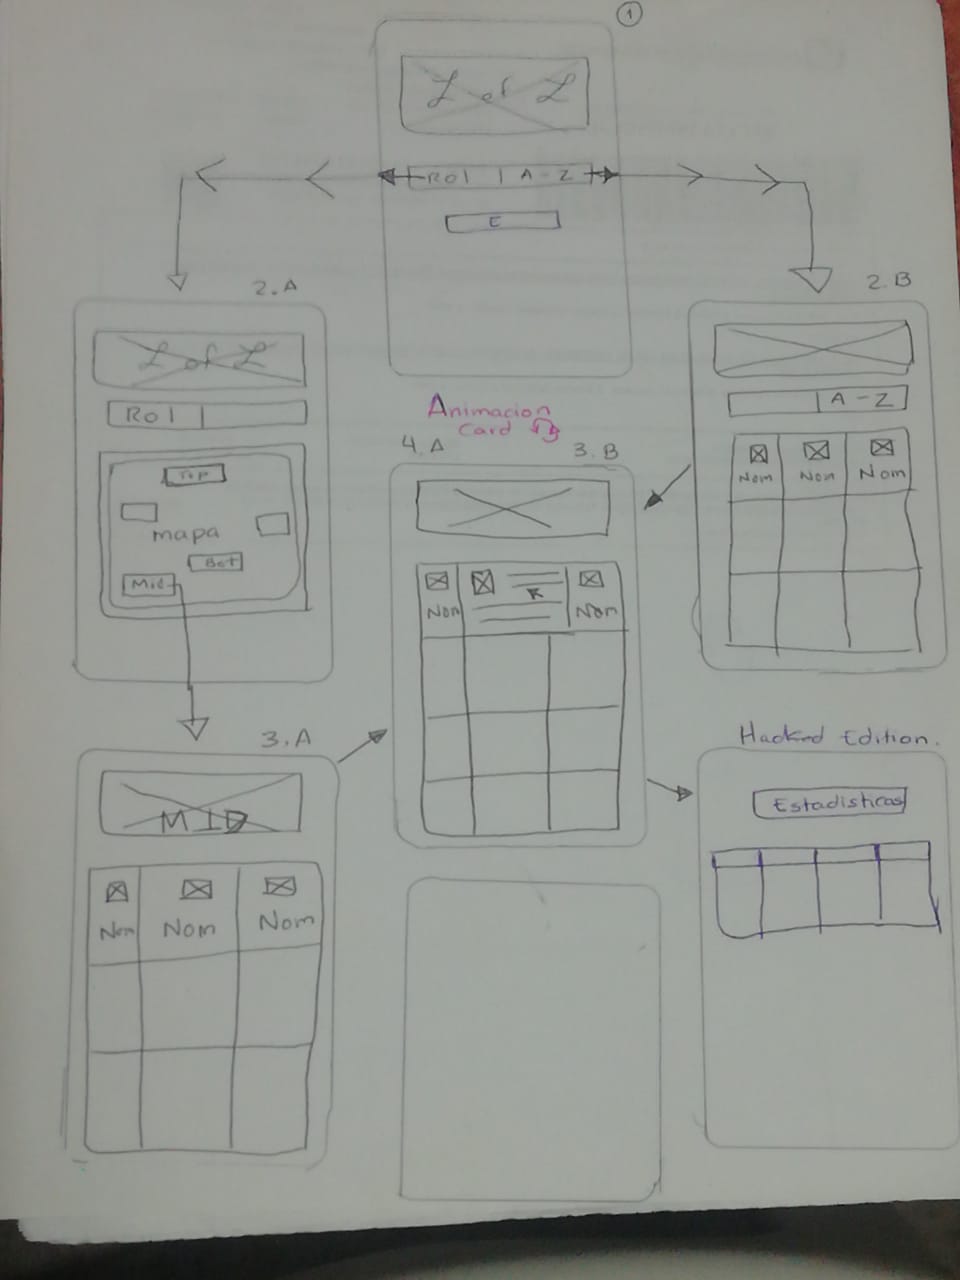 1
L of L
Rol | A - Z
E
2.A
L of L
Rol
Top
mapa
Bot
Mid
2.B
A - Z
Nom Nom Nom
Animacion
Card
4.A 3.B
Nom Nom
3.A
MID
Nom Nom Nom
Hacked Edition.
Estadisticas